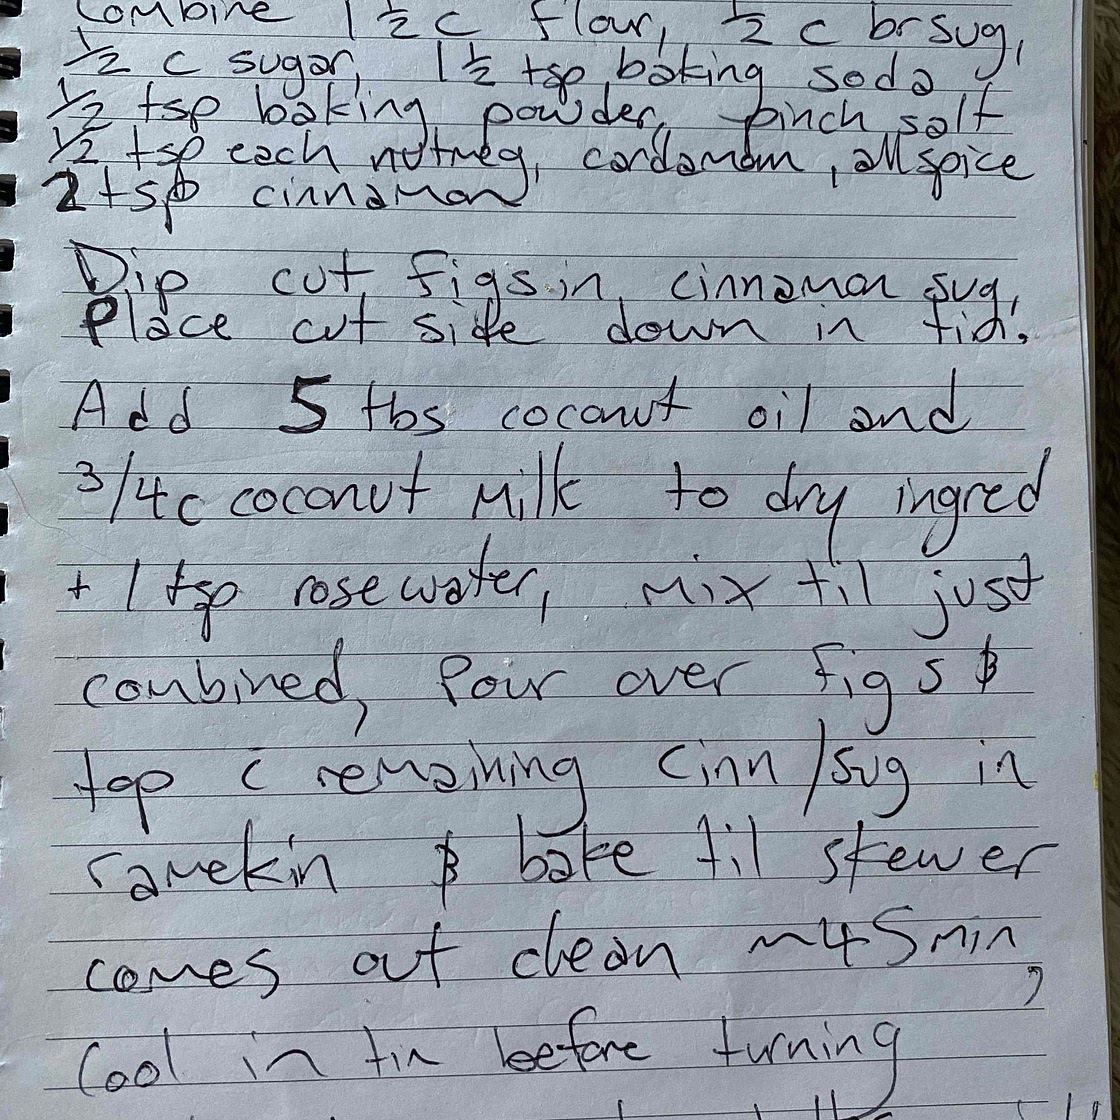 Combine 1 1/2 c flour, 1/2 c br sug,
1/2 c sugar, 1 1/2 tsp baking soda
1/2 tsp baking powder, pinch salt
1/2 tsp each nutmeg, cardamom, allspice
2 tsp cinnamon
Dip cut figs in cinnamon sug,
Place cut side down in tin.
Add 5 tbs coconut oil and
3/4 c coconut milk to dry ingred
+ 1 tsp rosewater, mix til just
combined, Pour over figs &
top c remaining cinn/sug in
ramekin & bake til skewer
comes out clean ~45min,
Cool in tin before turning